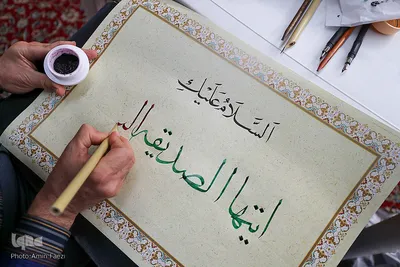 اَلسَّلامُ عَلَیْكِ
ایتها الصدیقه
Photo:Amin.Faezi